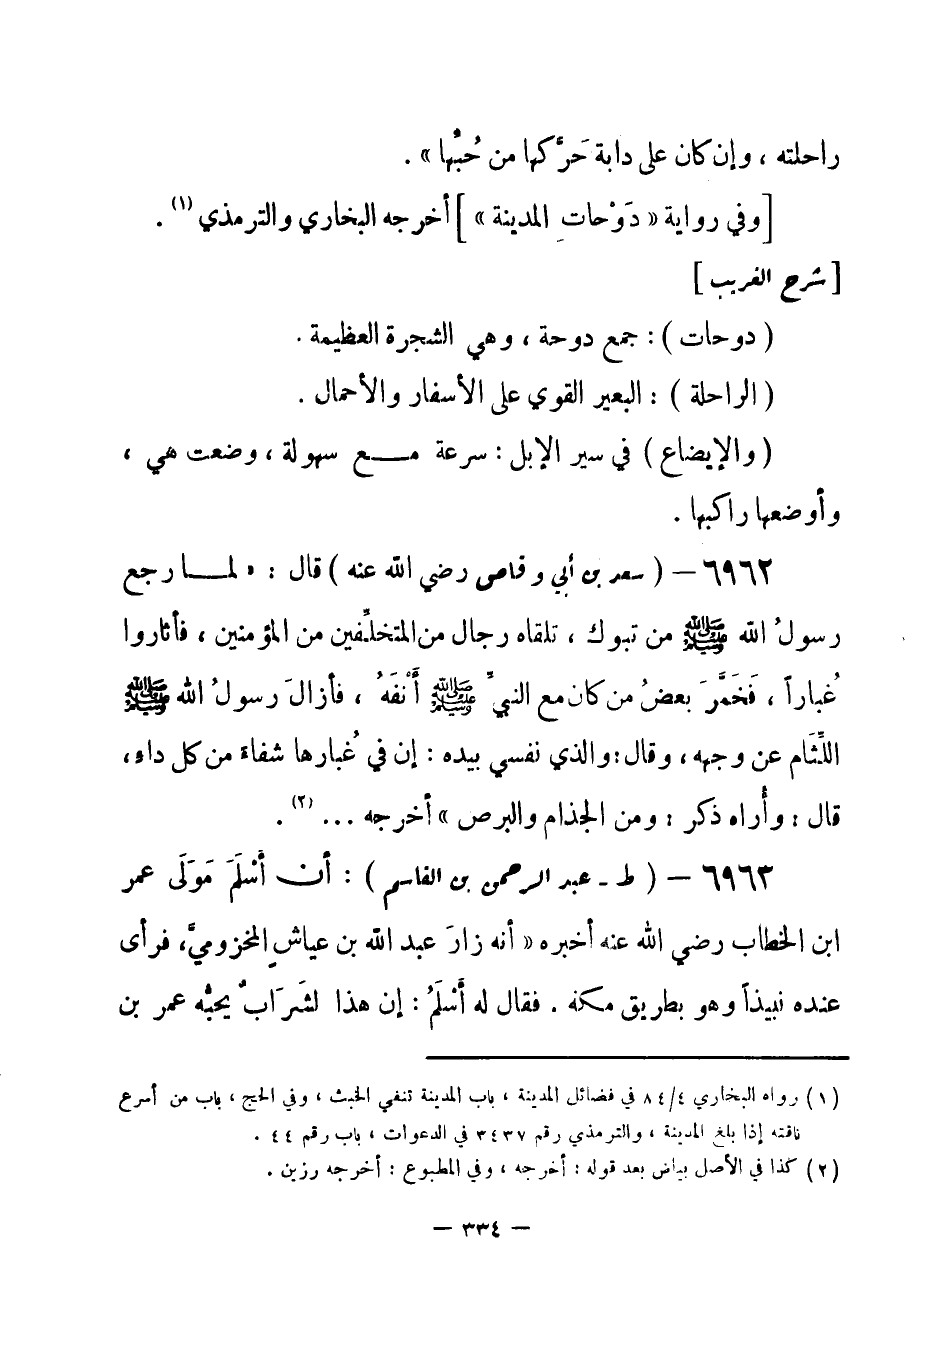 راحلته ، وإن كان على دابة حَرَّكها من حُبِّها » .
[ وفي رواية « دَوْحاتِ المدينة » ] أخرجه البخاري والترمذي (١) .
[ شرح الغريب ]
( دوحات ) : جمع دوحة ، وهي الشجرة العظيمة .
( الراحلة ) : البعير القوي على الأسفار والأحمال .
( والإيضاع ) في سير الإبل : سرعة مـــع سهولة ، وضعت هي ،
وأوضعها راكبها .
٦٩٦٢ — ( سعد بن أبي وقاص رضي الله عنه ) قال : « لمـــا رجع
رسولُ الله ﷺ من تبوك ، تلقاه رجال من المتخلِّفين من المؤمنين ، فأثاروا
غُباراً ، فَخَمَّرَ بعضُ من كان مع النبيِّ ﷺ أَنْفَهُ ، فأزالَ رسولُ الله ﷺ
اللِّثَام عن وجهه ، وقال : والذي نفسي بيده : إن في غُبارها شفاءً من كل داء ،
قال : وأُراه ذكر : ومن الجذام والبرص » أخرجه ... (٢) .
٦٩٦٣ — ( ط - عبد الرحمن بن القاسم ) : أن أَسْلَمَ مَوْلَى عمر
ابن الخطاب رضي الله عنه أخبره « أنه زارَ عبد الله بن عياشٍ المخزوميَّ، فرأى
عنده نبيذاً وهو بطريق مكة . فقال له أَسْلَمُ : إن هذا لشَرَابٌ يحبُّه عمر بن
(١) رواه البخاري ٨٤/٤ في فضائل المدينة ، باب المدينة تنفي الخبث ، وفي الحج ، باب من أسرع
ناقته إذا بلغ المدينة ، والترمذي رقم ٣٤٣٧ في الدعوات ، باب رقم ٤٤ .
(٢) كذا في الأصل بياض بعد قوله : أخرجه ، وفي المطبوع : أخرجه رزين .
— ٣٣٤ —